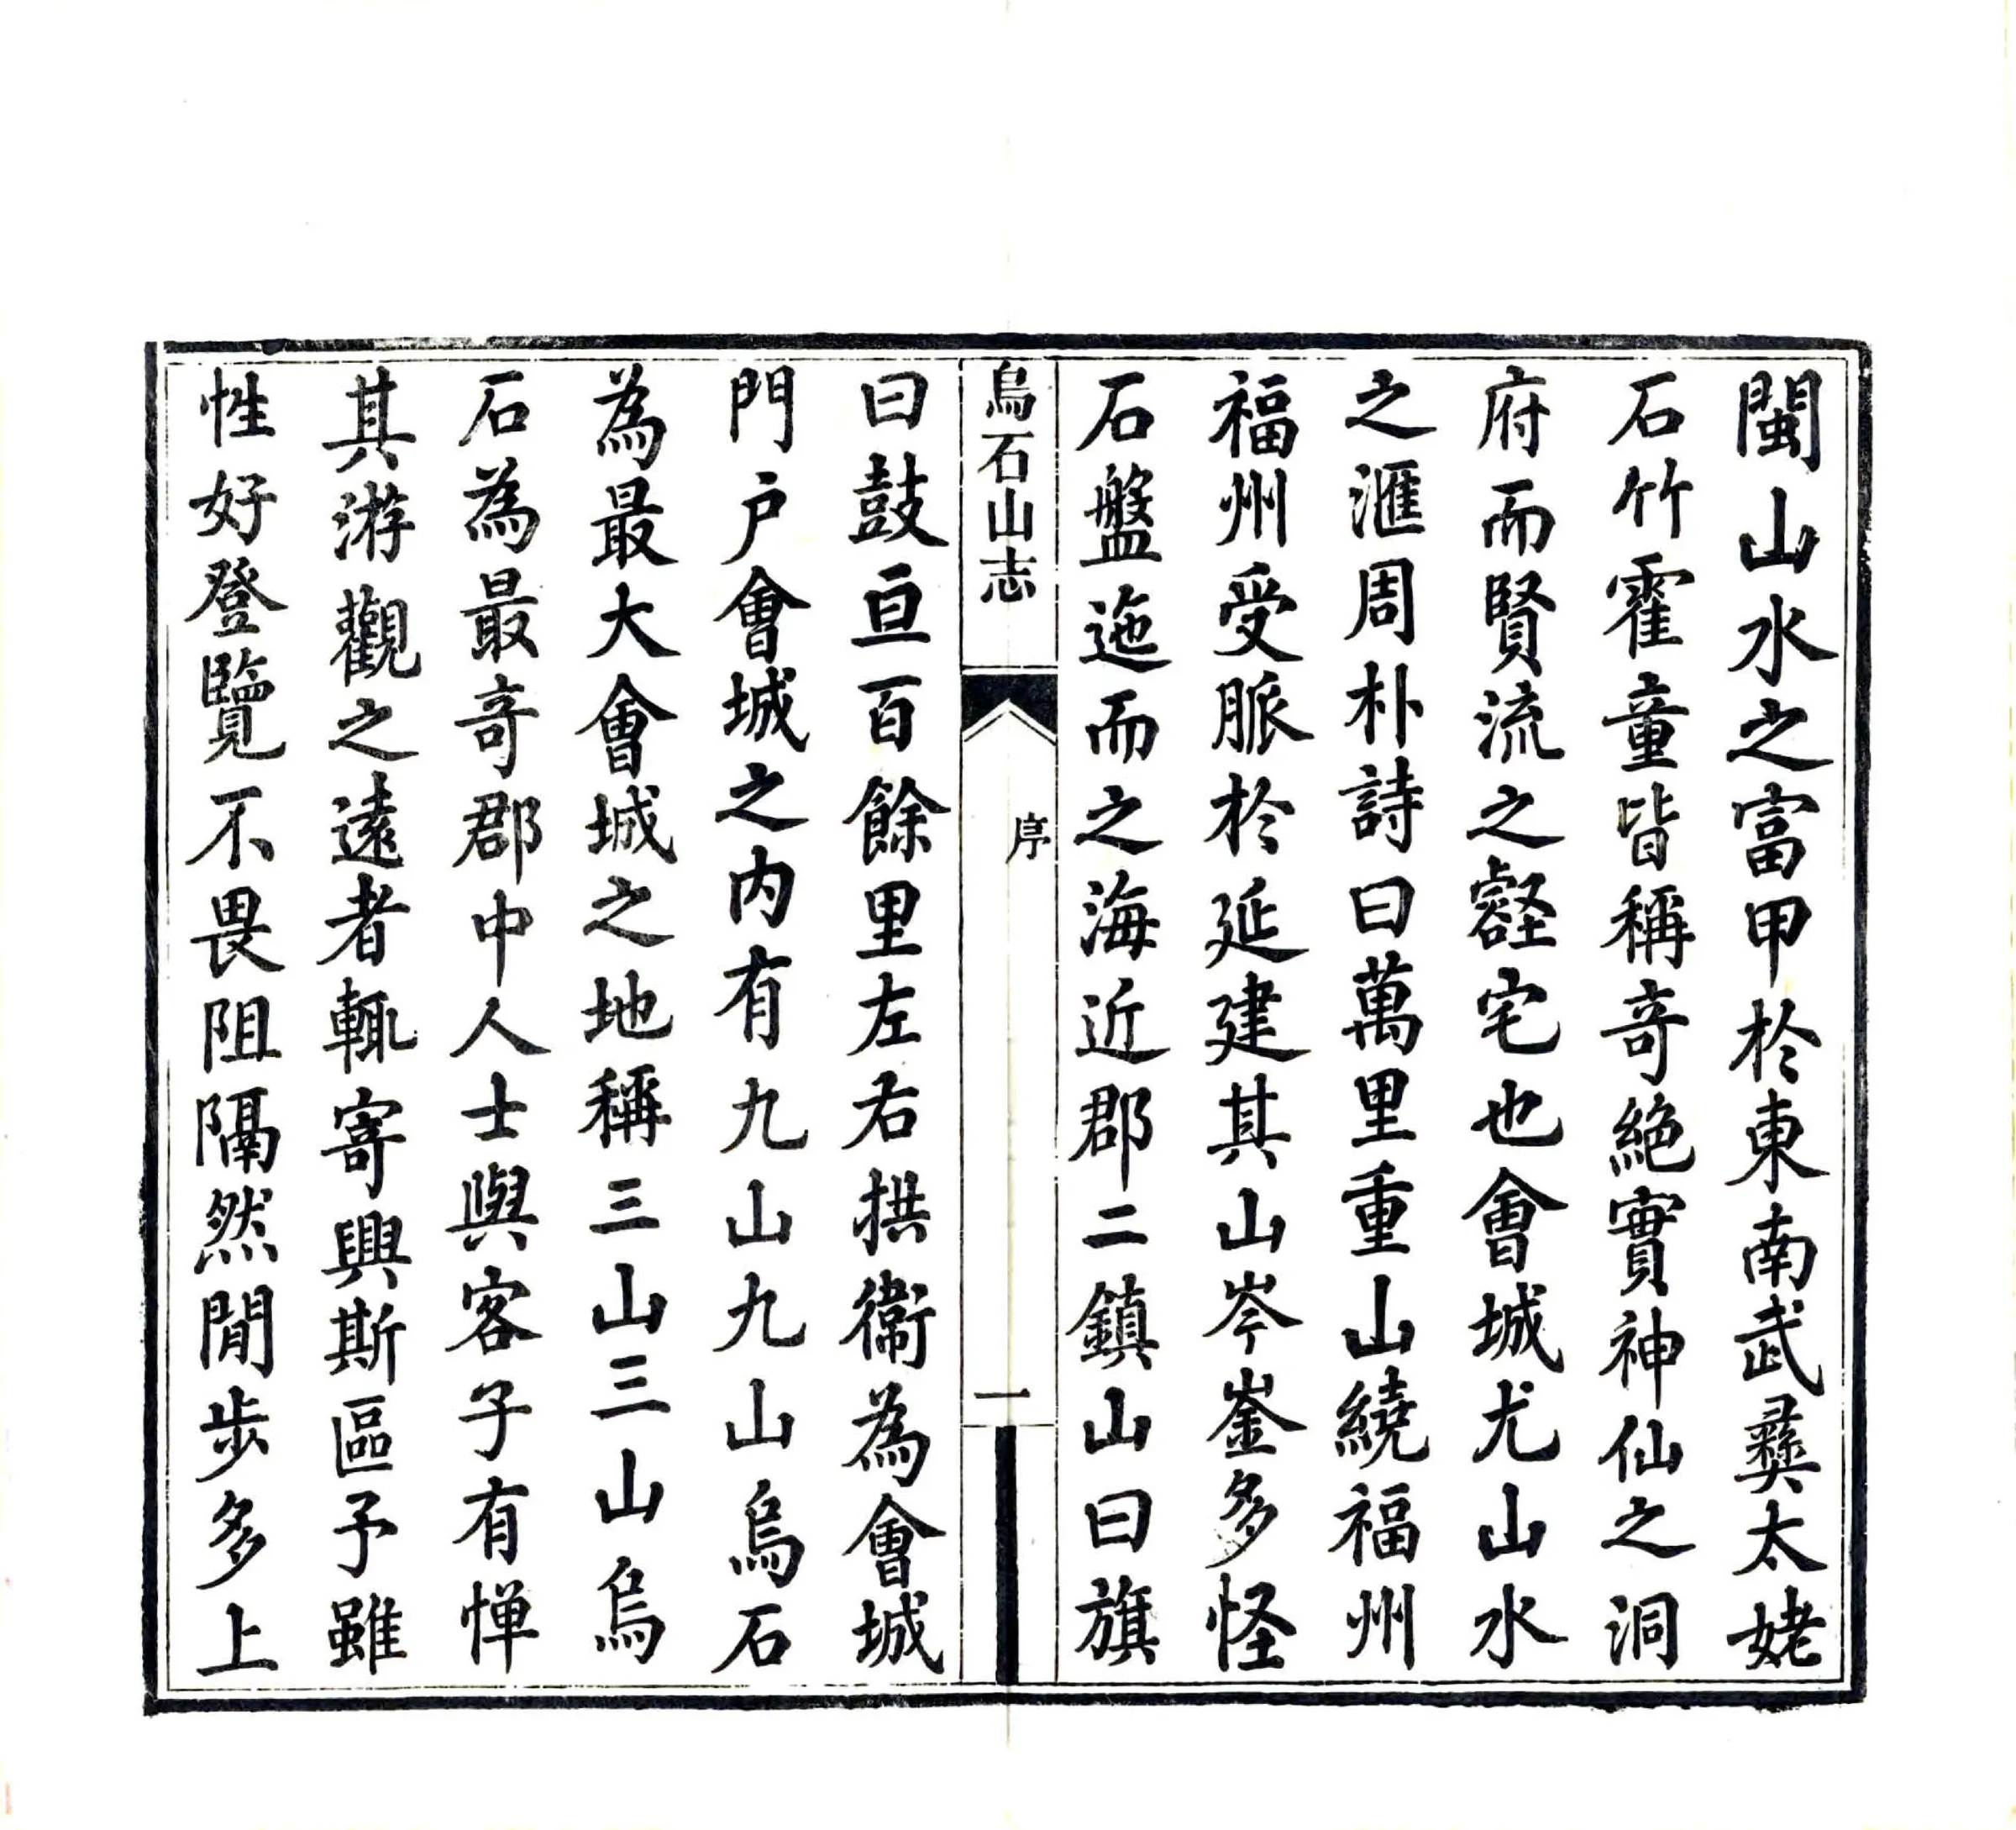 閩山水之富甲於東南武彝太姥
石竹霍童皆稱奇絕實神仙之洞
府而賢流之壑宅也會城尤山水
之滙周朴詩曰萬里重山繞福州
福州受脈於延建其山岑崟多怪
石盤迤而之海近郡二鎮山曰旗
烏石山志
序
一
曰鼓亘百餘里左右拱衞為會城
門戶會城之內有九山九山烏石
為最大會城之地稱三山三山烏
石為最奇郡中人士與客子有憚
其游觀之遠者輒寄興斯區予雖
性好登覽不畏阻隔然閒步多上